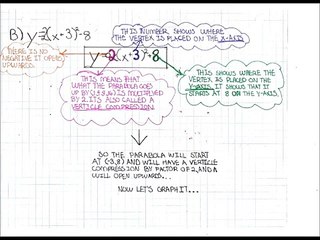 B) y=2(x-3)²-8
THIS NUMBER SHOWS WHERE
THE VERTEX IS PLACED ON THE X-AXIS
THERE IS NO
NEGATIVE IT OPENS
UPWARDS.
y=2(x-3)²-8
THIS MEANS THAT
WHAT THE PARABOLA GOES
UP BY IS MULTIPLIED
BY 2. IT'S ALSO CALLED A
VERTICLE COMPRESSION
THIS SHOWS WHERE THE
VERTEX IS PLACED ON THE
Y-AXIS. IT SHOWS THAT IT
STARTS AT 8 ON THE Y-AXIS.
SO THE PARABOLA WILL START
AT (-3,8) AND WILL HAVE A VERTICLE
COMPRESSION BY FACTOR OF 2, AND A
WILL OPEN UPWARDS...
NOW LET'S GRAPH IT...